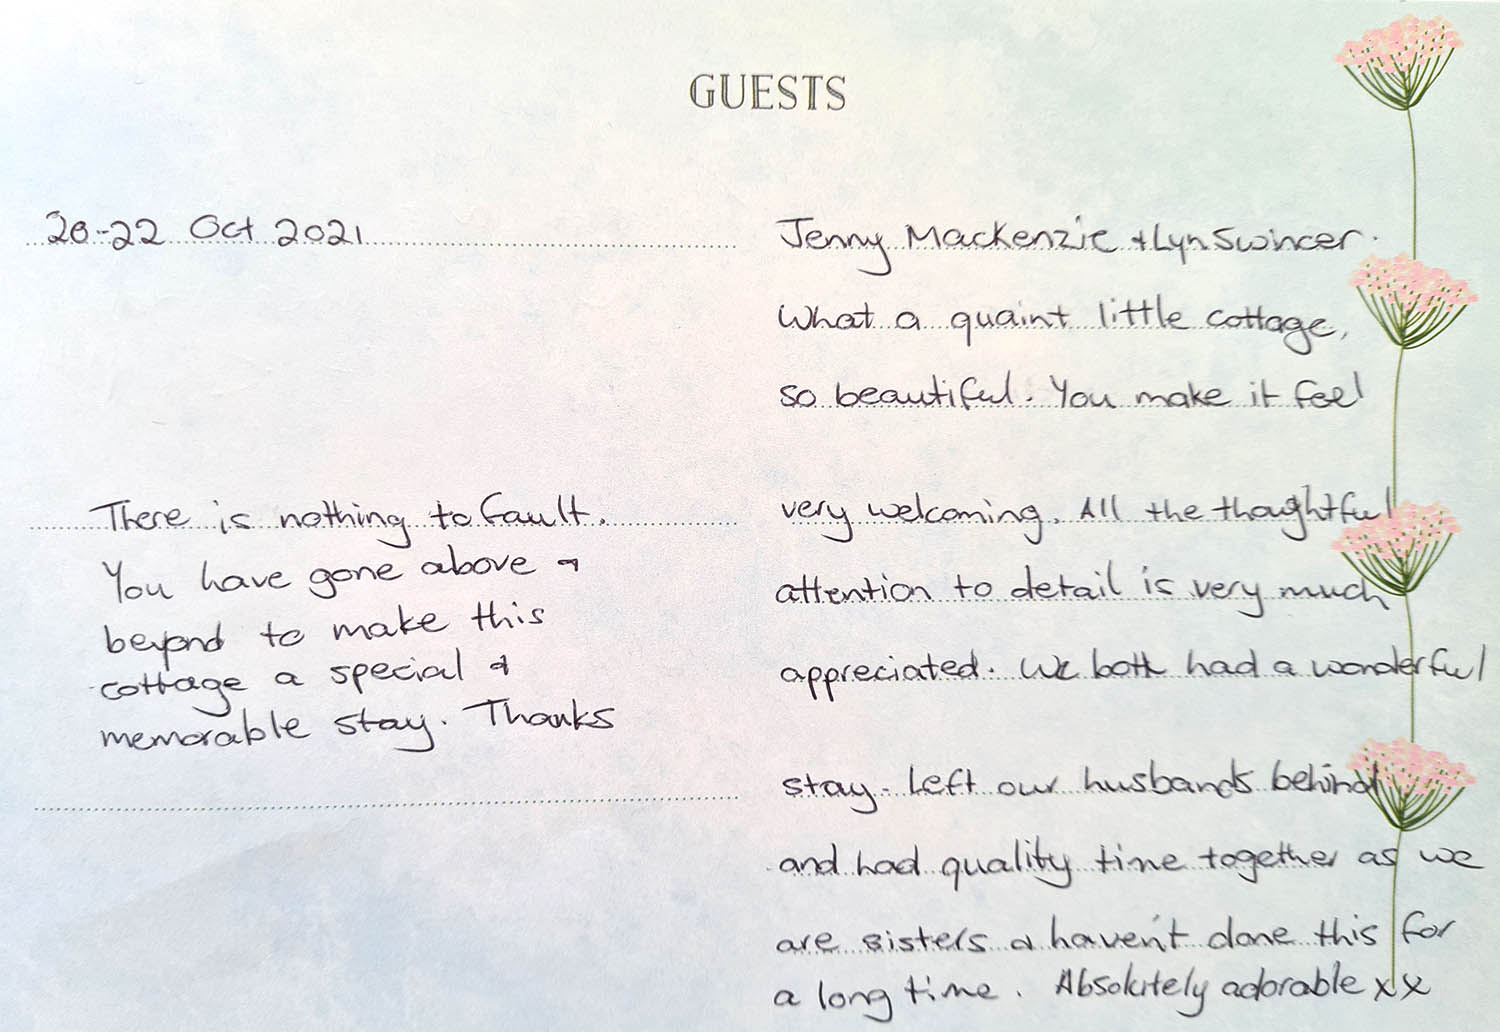 GUESTS
20-22 Oct 2021
There is nothing to fault.
You have gone above &
beyond to make this
cottage a special &
memorable stay. Thanks
Jenny Mackenzie + Lyn Swincer.
What a quaint little cottage,
so beautiful. You make it feel
very welcoming. All the thoughtful
attention to detail is very much
appreciated. We both had a wonderful
stay. Left our husbands behind
and had quality time together as we
are sisters & haven't done this for
a long time. Absolutely adorable xx